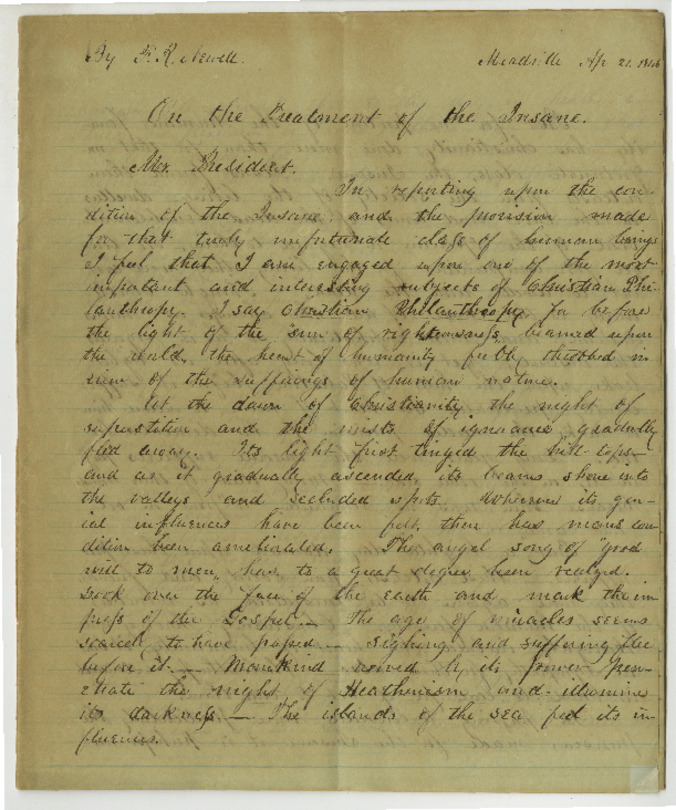 By F. R. Newell.
Meadville Ap 21. 1846
On the Treatment of the Insane.
Mr. President.
In reporting upon the con-
dition of the Insane and the provision made
for that truly unfortunate class of human beings
I feel that I am engaged upon one of the most
important and interesting subjects of Christian Phi-
lanthropy. I say Christian Philanthropy, for before
the light of the "sun of righteousness" beamed upon
the world, the heart of humanity feebly throbbed in
view of the sufferings of human nature.
At the dawn of Christianity the night of
superstition and the mists of ignorance gradually
fled away. Its light first tinged the hill-tops
and as it gradually ascended, its beams shone into
the valleys and secluded spots. Wherever its gen-
ial influences have been felt, there has mans con-
dition been ameliorated. The angel song of "good
will to men" has to a great degree been realized.
Look over the face of the earth and mark the im
press of the Gospel. — The age of miracles seems
scarcely to have passed — sighing and suffering flee
before it. — Mankind by its power pen-
etrate the night of Heathenism and illumine
its darkness. — The islands of the sea feel its in-
fluences.